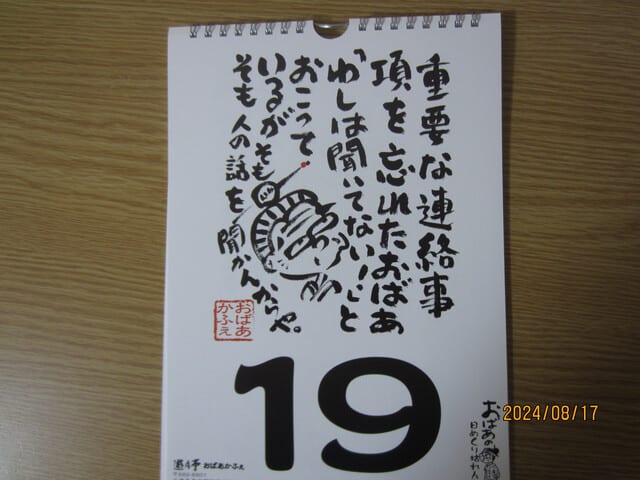 重要な連絡事
項を忘れたおばあ
「わしは聞いてない!」と
おこって
いるがそも
そも人の話を聞かんからや。
おばあ
かふぇ
19
おばあの
日めくり
2024/08/17
遊4亭 おばあかふぇ